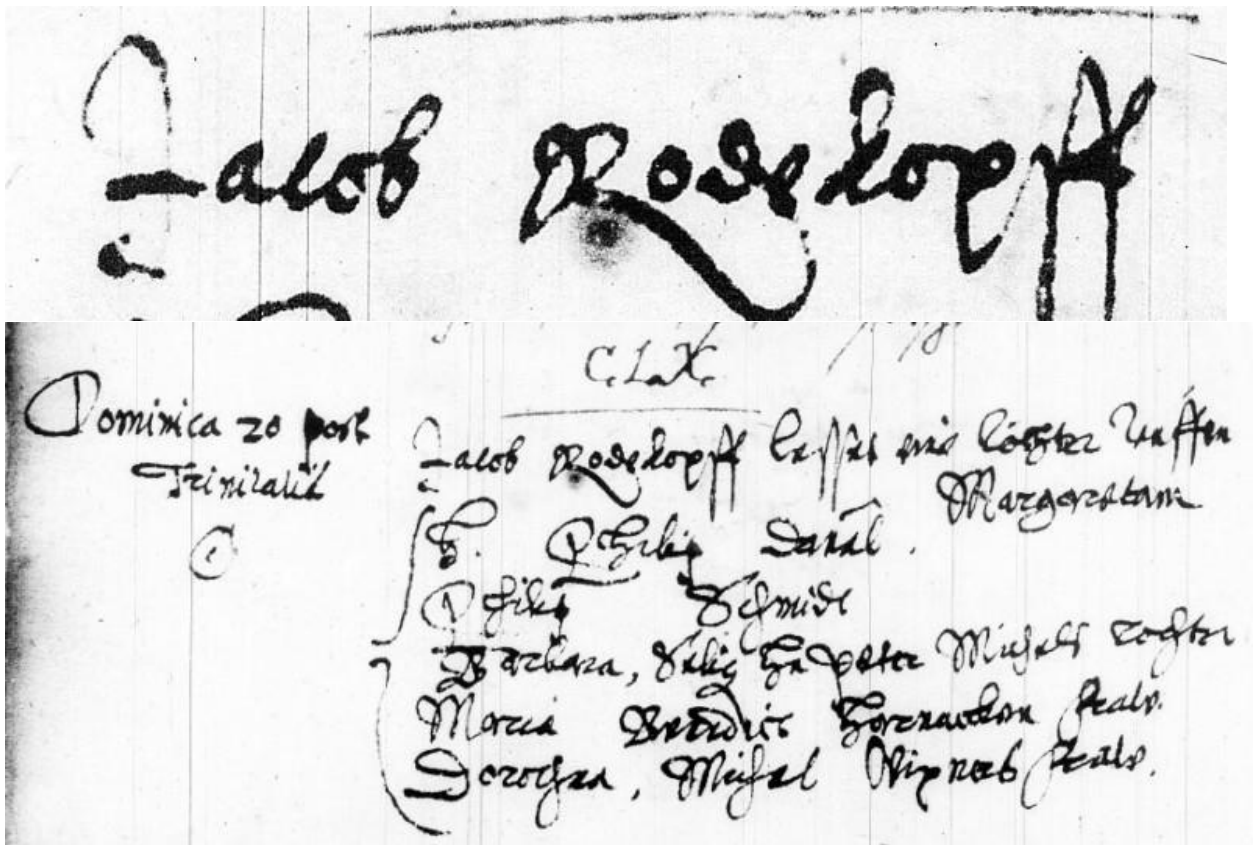 Jacob Rodekopff
C. L. X.
Dominica 20 post
Trinitatis
Jacob Rodekopff lesset eine tochter teuffen
Margaretam
H. Philip
Philip Schmidt
Barbara, Selig He Peter Michels tochter
Maria Benedict fraw.
Dorothea, Michel fraw.